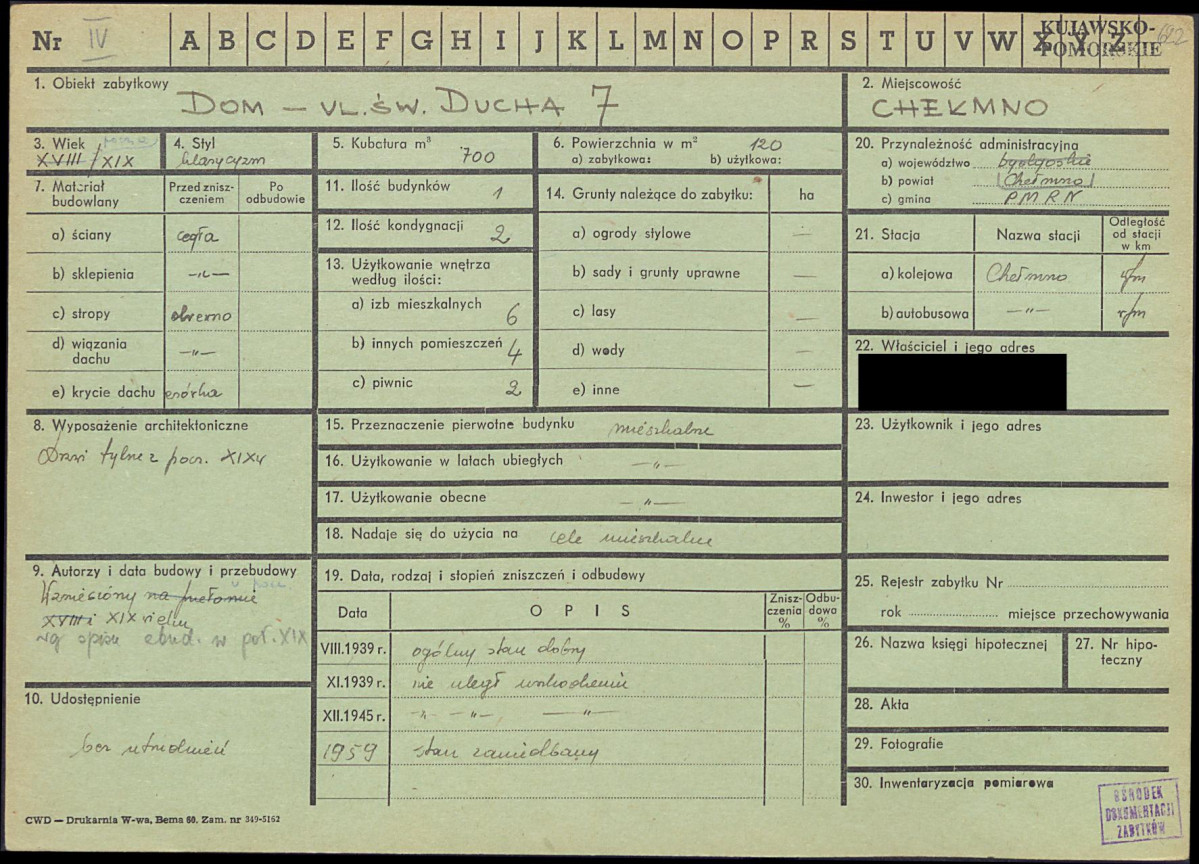 Nr IV A B C D E F G H I J K L M N O P R S T U V W X Y Z 622
KUJAWSKO-
POMORSKIE
1. Obiekt zabytkowy
DOM – UL. ŚW. DUCHA 7
2. Miejscowość
CHEŁMNO
3. Wiek
XVIII / XIX
4. Styl
klasycyzm
5. Kubatura m³ 700
6. Powierzchnia w m² 120
a) zabytkowa: b) użytkowa:
20. Przynależność administracyjna
a) województwo bydgoskie
b) powiat (Chełmno)
c) gmina PMRN
7. Materiał budowlany
Przed znisz-
czeniem
Po
odbudowie
a) ściany cegła
b) sklepienia –„–
c) stropy drewno
d) wiązania
dachu –„–
e) krycie dachu esówka
11. Ilość budynków 1
12. Ilość kondygnacji 2
13. Użytkowanie wnętrza
według ilości:
a) izb mieszkalnych 6
b) innych pomieszczeń 4
c) piwnic 2
14. Grunty należące do zabytku: ha
a) ogrody stylowe —
b) sady i grunty uprawne —
c) lasy —
d) wody —
e) inne —
21. Stacja Nazwa stacji
Odległość
od stacji
w km
a) kolejowa Chełmno
b) autobusowa –„–
22. Właściciel i jego adres
8. Wyposażenie architektoniczne
Drzwi tylne z pocz. XIXw
15. Przeznaczenie pierwotne budynku mieszkalne
16. Użytkowanie w latach ubiegłych –„–
17. Użytkowanie obecne –„–
18. Nadaje się do użycia na cele mieszkalne
23. Użytkownik i jego adres
24. Inwestor i jego adres
9. Autorzy i data budowy i przebudowy
w pocz.
Wzniesiony na przełomie
XVIII i XIX wieku
wg spisu zbud. w poł. XIX
19. Data, rodzaj i stopień zniszczeń i odbudowy
Data OPIS
Znisz-
czenia
%
Odbu-
dowa
%
VIII.1939 r. ogólny stan dobry
XI.1939 r. nie uległ uszkodzeniu
XII.1945 r. –„– –„– –„–
1959 stan zaniedbany
25. Rejestr zabytku Nr
rok miejsce przechowywania
26. Nazwa księgi hipotecznej
27. Nr hipo-
teczny
10. Udostępnienie
bez utrudnień
28. Akta
29. Fotografie
30. Inwentaryzacja pomiarowa
OŚRODEK
DOKUMENTACJI
ZABYTKÓW
CWD — Drukarnia W-wa, Bema 60. Zam. nr 349-5162